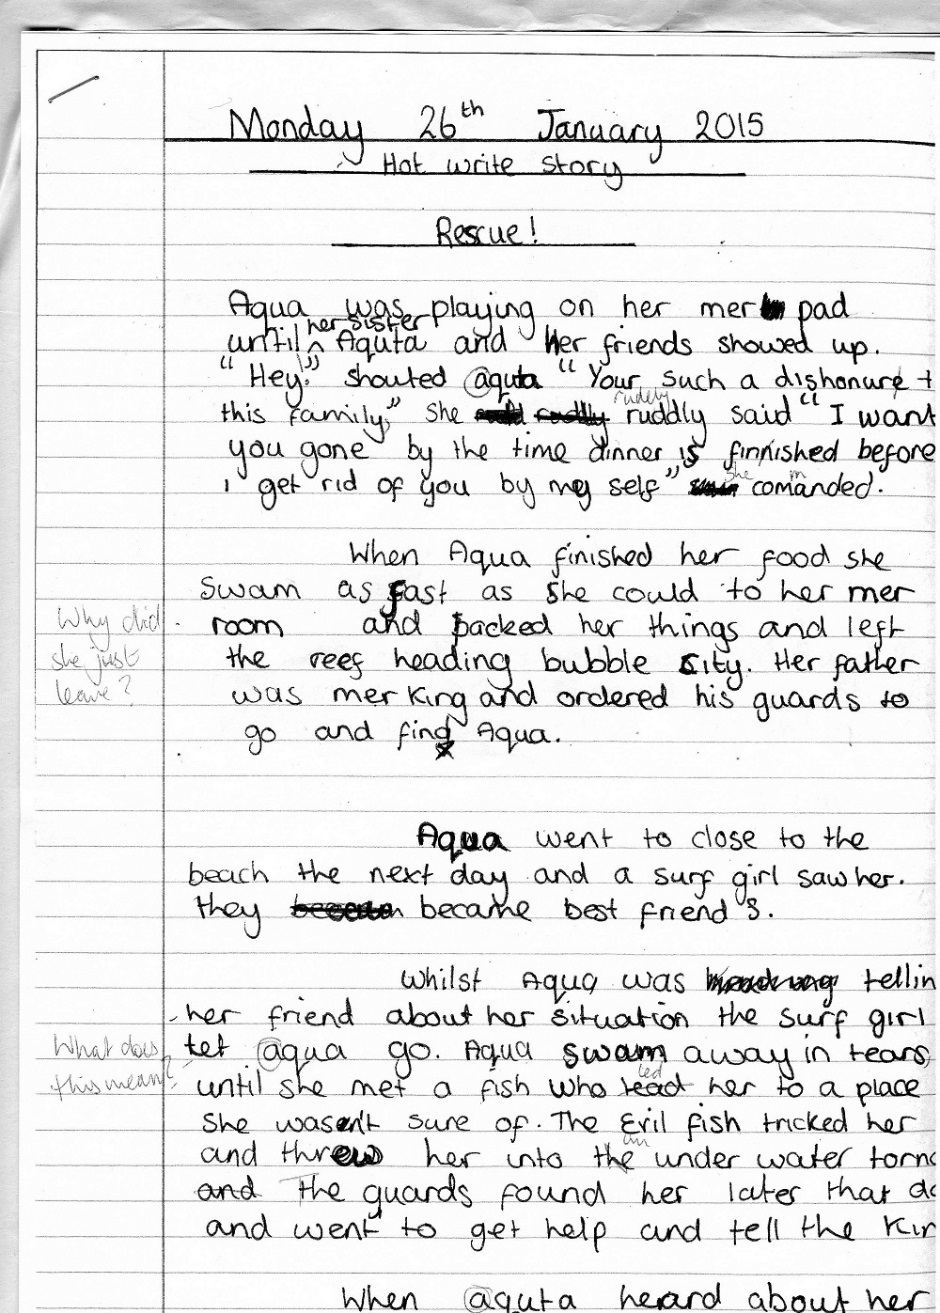 Monday 26th January 2015
Hot write story
Rescue!
Aqua was playing on her mer pad
her sister
until ^ Aquta and her friends showed up.
"Hey!" shouted aquta "Your such a dishonure t
rudely
this family," she ruddly said "I want
you gone by the time dinner is finnished before
she m
i get rid of you by my self" comanded.
When Aqua finished her food she
swam as fast as she could to her mer
Why did room and packed her things and left
she just the reef heading bubble city. Her father
leave? was mer king and ordered his guards to
go and find Aqua.
Aqua went to close to the
beach the next day and a surf girl saw her.
they became best friend's.
Whilst Aqua was tellin
her friend about her situation the surf girl
What does let aqua go. Aqua swam away in tears,
led
this mean? until she met a fish who lead her to a place
she wasen't sure of. The Evil fish tricked her
an
and threw her into the under water torna
and The guards found her later that da
and went to get help and tell the kin
When aquta heard about her